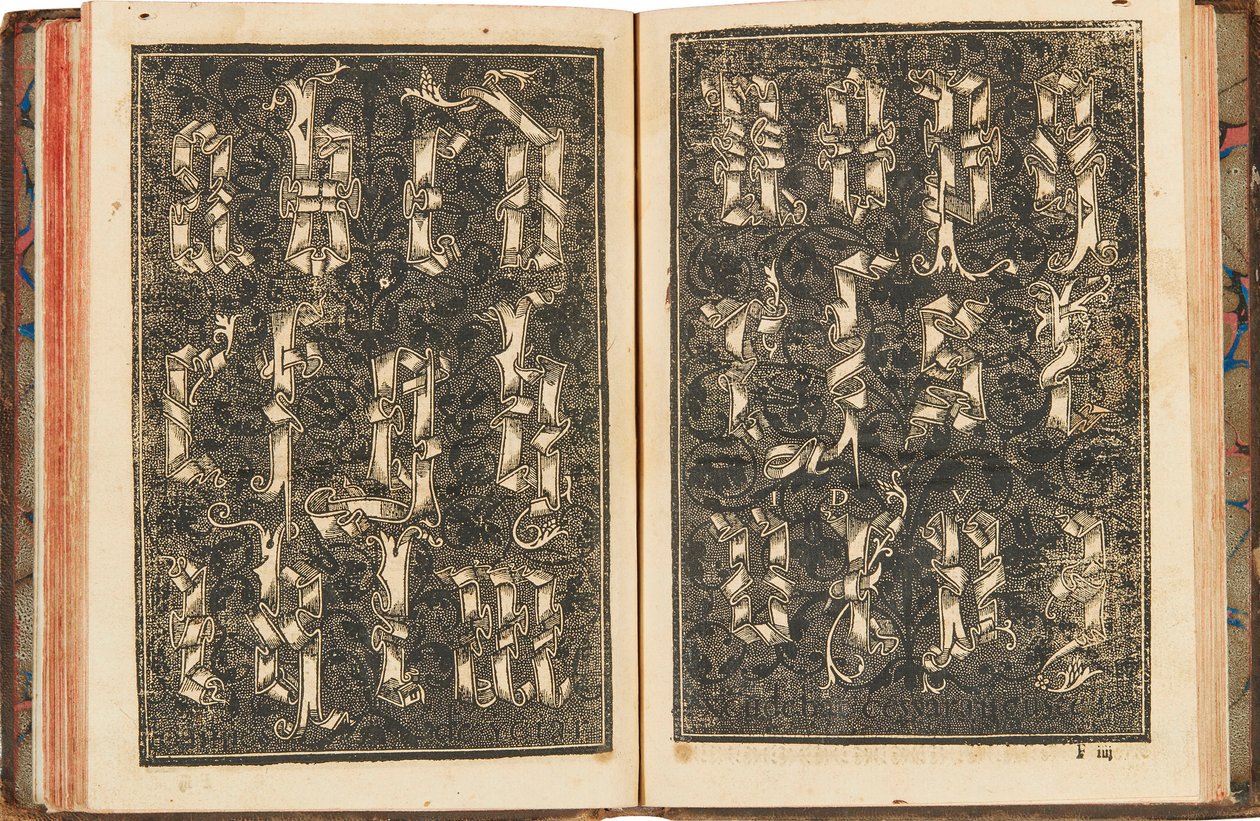 a b c d
e f g h
i k l m
n o p q
r ſ s t
I D V
u x y z
F iiij